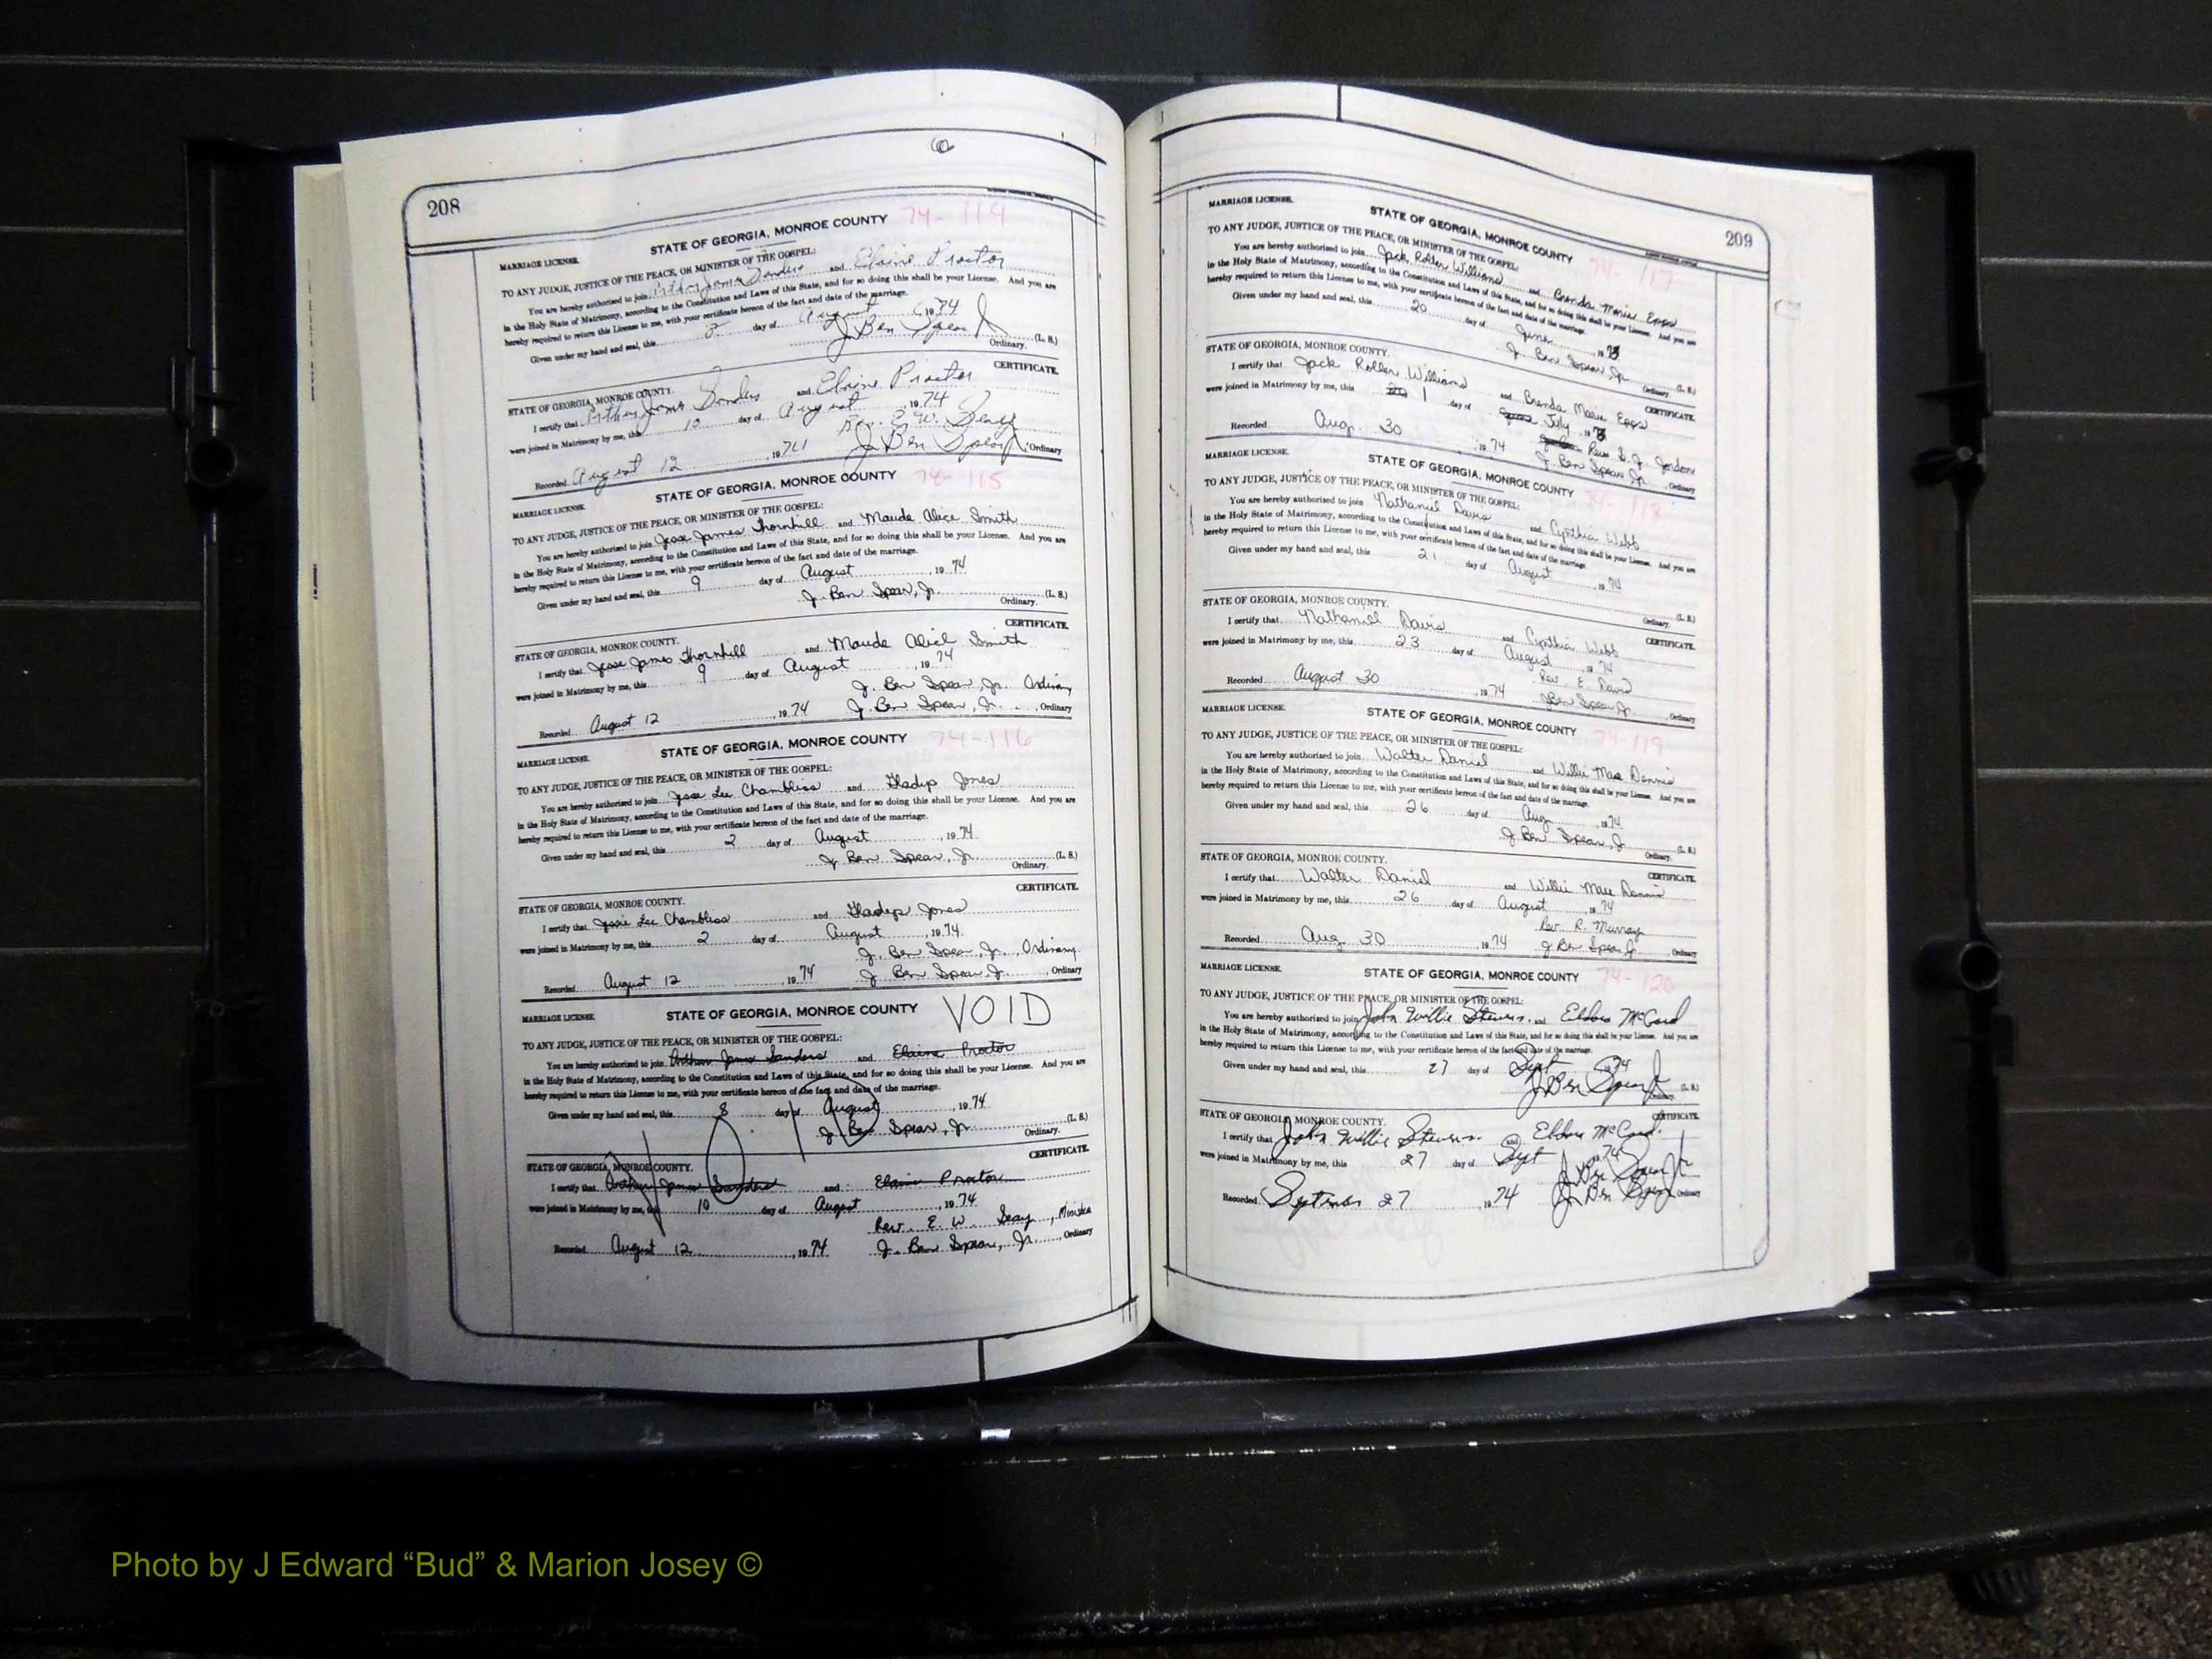 208
STATE OF GEORGIA, MONROE COUNTY 74-114
MARRIAGE LICENSE.
TO ANY JUDGE, JUSTICE OF THE PEACE, OR MINISTER OF THE GOSPEL:
You are hereby authorized to join Arthur James Sanders and Elaine Proctor
in the Holy State of Matrimony, according to the Constitution and Laws of this State, and for so doing this shall be your License. And you are
hereby required to return this License to me, with your certificate hereon of the fact and date of the marriage.
Given under my hand and seal, this day of August 1974
J Ben Spear Jr (L. S.)
Ordinary.
CERTIFICATE.
STATE OF GEORGIA, MONROE COUNTY.
I certify that Arthur James Sanders and Elaine Proctor
were joined in Matrimony by me, this 10 day of August 1974
Rev. E. W. Seay
Recorded August 12, 1974 J Ben Spear Jr, Ordinary
STATE OF GEORGIA, MONROE COUNTY 74-115
MARRIAGE LICENSE.
TO ANY JUDGE, JUSTICE OF THE PEACE, OR MINISTER OF THE GOSPEL:
You are hereby authorized to join Jesse James Thornhill and Maude Alice Smith
in the Holy State of Matrimony, according to the Constitution and Laws of this State, and for so doing this shall be your License. And you are
hereby required to return this License to me, with your certificate hereon of the fact and date of the marriage.
Given under my hand and seal, this 9 day of August, 1974
J. Ben Spear, Jr. (L. S.)
Ordinary.
CERTIFICATE.
STATE OF GEORGIA, MONROE COUNTY.
I certify that Jesse James Thornhill and Maude Alice Smith
were joined in Matrimony by me, this 9 day of August, 1974
J. Ben Spear, Jr. Ordinary
Recorded August 12, 1974 J. Ben Spear, Jr., Ordinary
STATE OF GEORGIA, MONROE COUNTY 74-116
MARRIAGE LICENSE.
TO ANY JUDGE, JUSTICE OF THE PEACE, OR MINISTER OF THE GOSPEL:
You are hereby authorized to join Jessie Lee Chambliss and Gladys Jones
in the Holy State of Matrimony, according to the Constitution and Laws of this State, and for so doing this shall be your License. And you are
hereby required to return this License to me, with your certificate hereon of the fact and date of the marriage.
Given under my hand and seal, this 2 day of August, 1974
J. Ben Spear, Jr. (L. S.)
Ordinary.
CERTIFICATE.
STATE OF GEORGIA, MONROE COUNTY.
I certify that Jessie Lee Chambliss and Gladys Jones
were joined in Matrimony by me, this 2 day of August, 1974
J. Ben Spear, Jr., Ordinary
Recorded August 12, 1974 J Ben Spear Jr., Ordinary
STATE OF GEORGIA, MONROE COUNTY VOID
MARRIAGE LICENSE.
TO ANY JUDGE, JUSTICE OF THE PEACE, OR MINISTER OF THE GOSPEL:
You are hereby authorized to join Arthur James Sanders and Elaine Proctor
in the Holy State of Matrimony, according to the Constitution and Laws of this State, and for so doing this shall be your License. And you are
hereby required to return this License to me, with your certificate hereon of the fact and date of the marriage.
Given under my hand and seal, this 8 day of August, 1974
J. Ben Spear, Jr. (L. S.)
Ordinary.
CERTIFICATE.
STATE OF GEORGIA, MONROE COUNTY.
I certify that Arthur James Sanders and Elaine Proctor
were joined in Matrimony by me, this 10 day of August, 1974
Rev. E. W. Seay, Minister
Recorded August 12, 1974 J. Ben Spear, Jr., Ordinary
209
MARRIAGE LICENSE.
STATE OF GEORGIA, MONROE COUNTY 74-117
TO ANY JUDGE, JUSTICE OF THE PEACE, OR MINISTER OF THE GOSPEL:
You are hereby authorized to join Jack Roller Williams and Brenda Marie Epps
in the Holy State of Matrimony, according to the Constitution and Laws of this State, and for so doing this shall be your License. And you are
hereby required to return this License to me, with your certificate hereon of the fact and date of the marriage.
Given under my hand and seal, this 20 day of June 1973
J. Ben Spear, Jr. (L. S.)
Ordinary.
STATE OF GEORGIA, MONROE COUNTY. CERTIFICATE.
I certify that Jack Roller Williams and Brenda Marie Epps
were joined in Matrimony by me, this 1 day of July, 1973
Rev. S. J. Jordan
Recorded Aug. 30, 1974 J. Ben Spear Jr., Ordinary
MARRIAGE LICENSE. STATE OF GEORGIA, MONROE COUNTY 74-118
TO ANY JUDGE, JUSTICE OF THE PEACE, OR MINISTER OF THE GOSPEL:
You are hereby authorized to join Nathaniel Davis and Cynthia Webb
in the Holy State of Matrimony, according to the Constitution and Laws of this State, and for so doing this shall be your License. And you are
hereby required to return this License to me, with your certificate hereon of the fact and date of the marriage.
Given under my hand and seal, this 21 day of August, 1974
(L. S.)
Ordinary.
STATE OF GEORGIA, MONROE COUNTY. CERTIFICATE.
I certify that Nathaniel Davis and Cynthia Webb
were joined in Matrimony by me, this 23 day of August, 1974
Rev. E. David
Recorded August 30, 1974 J Ben Spear Jr., Ordinary
MARRIAGE LICENSE. STATE OF GEORGIA, MONROE COUNTY 74-119
TO ANY JUDGE, JUSTICE OF THE PEACE, OR MINISTER OF THE GOSPEL:
You are hereby authorized to join Walter Daniel and Willie Mae Dennis
in the Holy State of Matrimony, according to the Constitution and Laws of this State, and for so doing this shall be your License. And you are
hereby required to return this License to me, with your certificate hereon of the fact and date of the marriage.
Given under my hand and seal, this 26 day of Aug, 1974
J Ben Spear, Jr (L. S.)
Ordinary.
STATE OF GEORGIA, MONROE COUNTY. CERTIFICATE.
I certify that Walter Daniel and Willie Mae Dennis
were joined in Matrimony by me, this 26 day of August, 1974
Rev. R. Murray
Recorded Aug 30, 1974 J Ben Spear Jr, Ordinary
MARRIAGE LICENSE. STATE OF GEORGIA, MONROE COUNTY 74-120
TO ANY JUDGE, JUSTICE OF THE PEACE, OR MINISTER OF THE GOSPEL:
You are hereby authorized to join John Willie Stevens and McCord
in the Holy State of Matrimony, according to the Constitution and Laws of this State, and for so doing this shall be your License. And you are
hereby required to return this License to me, with your certificate hereon of the fact and date of the marriage.
Given under my hand and seal, this 27 day of Sept 1974
J Ben Spear Jr (L. S.)
Ordinary.
STATE OF GEORGIA, MONROE COUNTY. CERTIFICATE.
I certify that John Willie Stevens and McCord
were joined in Matrimony by me, this 27 day of Sept 1974
J Ben Spear Jr
Recorded September 27, 1974 J Ben Spear Jr Ordinary
Photo by J Edward “Bud” & Marion Josey ©